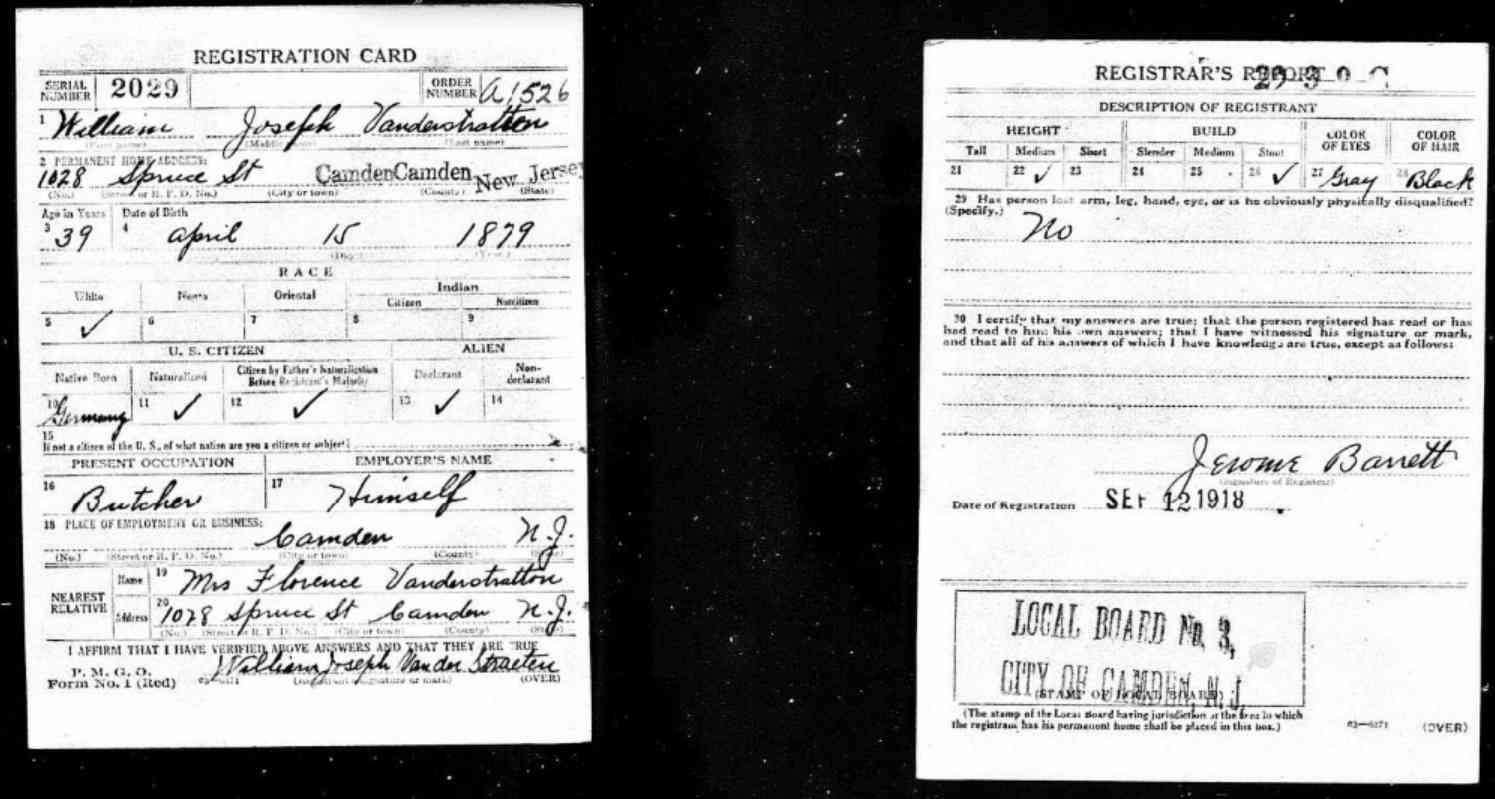 REGISTRATION CARD
SERIAL NUMBER 2029 ORDER NUMBER A1526
1 William Joseph Vanderstratten
(First name) (Middle name) (Last name)
2 PERMANENT HOME ADDRESS:
1028 Spruce St Camden Camden New Jersey
(No.) (Street or R. F. D. No.) (City or town) (County) (State)
Age in Years Date of Birth
3 39 4 April 15 1879
(Day) (Year)
RACE
White Negro Oriental Indian
Citizen Noncitizen
5 ✓ 6 7 8 9
U. S. CITIZEN ALIEN
Native Born Naturalized Citizen by Father's Naturalization Before Registrant's Majority Declarant Non-declarant
10 Germany 11 ✓ 12 ✓ 13 ✓ 14
15
If not a citizen of the U. S., of what nation are you a citizen or subject?
PRESENT OCCUPATION EMPLOYER'S NAME
16 Butcher 17 Himself
18 PLACE OF EMPLOYMENT OR BUSINESS:
Camden N.J.
(No.) (Street or R. F. D. No.) (City or town) (County) (State)
NEAREST RELATIVE
Name 19 Mrs Florence Vanderstratton
Address 20 1028 Spruce St Camden N.J.
(No.) (Street or R. F. D. No.) (City or town) (County) (State)
I AFFIRM THAT I HAVE VERIFIED ABOVE ANSWERS AND THAT THEY ARE TRUE
William Joseph Vander Straeten
P. M. G. O.
Form No. 1 (Red) 03-6171 (Registrant's signature or mark) (OVER)
REGISTRAR'S REPORT
DESCRIPTION OF REGISTRANT
HEIGHT BUILD COLOR OF EYES COLOR OF HAIR
Tall Medium Short Slender Medium Stout
21 22 ✓ 23 24 25 26 ✓ 27 Gray 28 Black
29 Has person lost arm, leg, hand, eye, or is he obviously physically disqualified?
(Specify.) No
30 I certify that my answers are true; that the person registered has read or has
had read to him his own answers; that I have witnessed his signature or mark,
and that all of his answers of which I have knowledge are true, except as follows:
Jerome Barrett
(Signature of Registrar)
Date of Registration SEP 12 1918
LOCAL BOARD No. 3,
CITY OF CAMDEN, N. J.
(STAMP OF LOCAL BOARD)
(The stamp of the Local Board having jurisdiction of the area in which
the registrant has his permanent home shall be placed in this box.)
03-6171 (OVER)